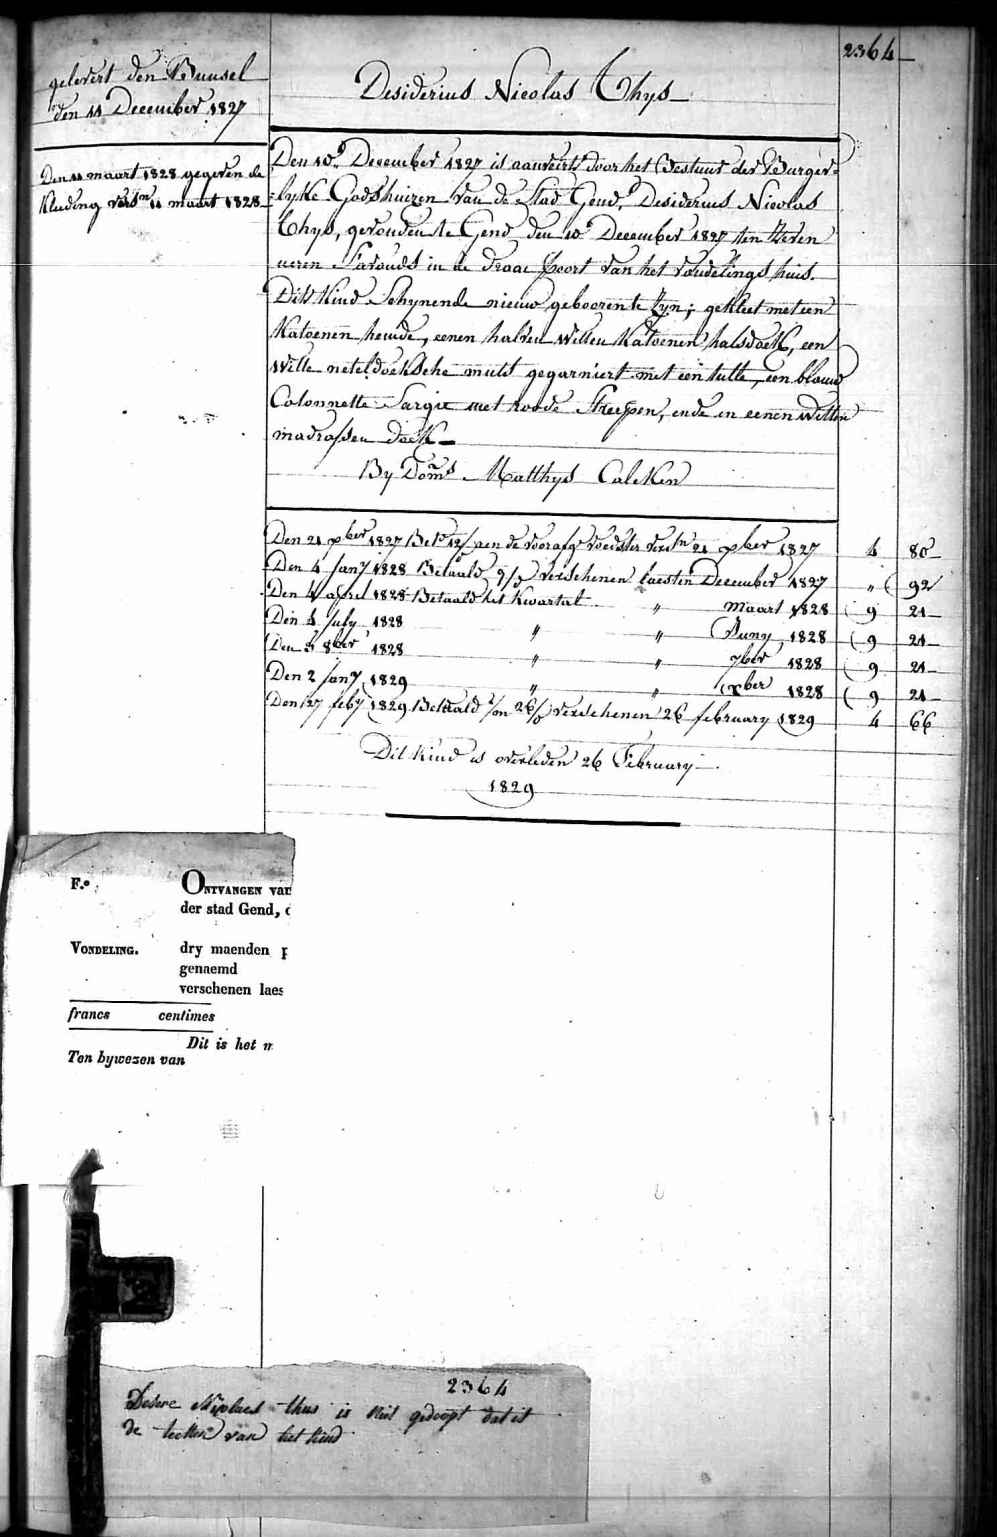 2364
gelevert den Bunsel
den 11 December 1827
Desiderius Nicolas Thys
Den 11 maart 1828 gegeven de
Kleeding versn 11 maart 1828
Den 10e December 1827 is aanveirt door het Bestuur der Burger-
lyke Godshuizen van de Stad Gend, Desiderius Nicolas
Thys, gevonden te Gend den 10e December 1827 ten zeven
ueren s'avonds in de draai poort van het vondelings huis.
Dit Kind schynende nieuw geboren te zyn; gekleet met een
Katoenen hemde, eenen halven witten Katoenen halsdoek, een
witte neteldoeksche muts gegarniert met een tulle, een blauw
Colonnette Sargie met roode streepen, ende in eenen witten
madrassen doek
By Doms Matthys Caleken
Den 21 xber 1827 Bete 12/ aen de voorafge voedster versn 21 xber 1827 4 80
Den 4 Jany 1828 Betaald verschenen laesten December 1827 " 92
Den 4 april 1828 Betaald het Kwartal " maart 1828 9 21
Den 4 July 1828 " " Juny 1828 9 21
Den 3 8ber 1828 " " 7ber 1828 9 21
Den 2 Jany 1829 " " xber 1828 9 21
Den 27 feby 1829 Betaald verschenen 26 february 1829 4 66
Dit kind is overleden 26 February
1829
F.o ONTVANGEN van
der stad Gend,
VONDELING. dry maenden
genaemd
verschenen laes
francs centimes
Dit is het
Ten bywezen van
2364
Desere Nicolaes thus is niet gedoopt dat is
de teeken van het kind